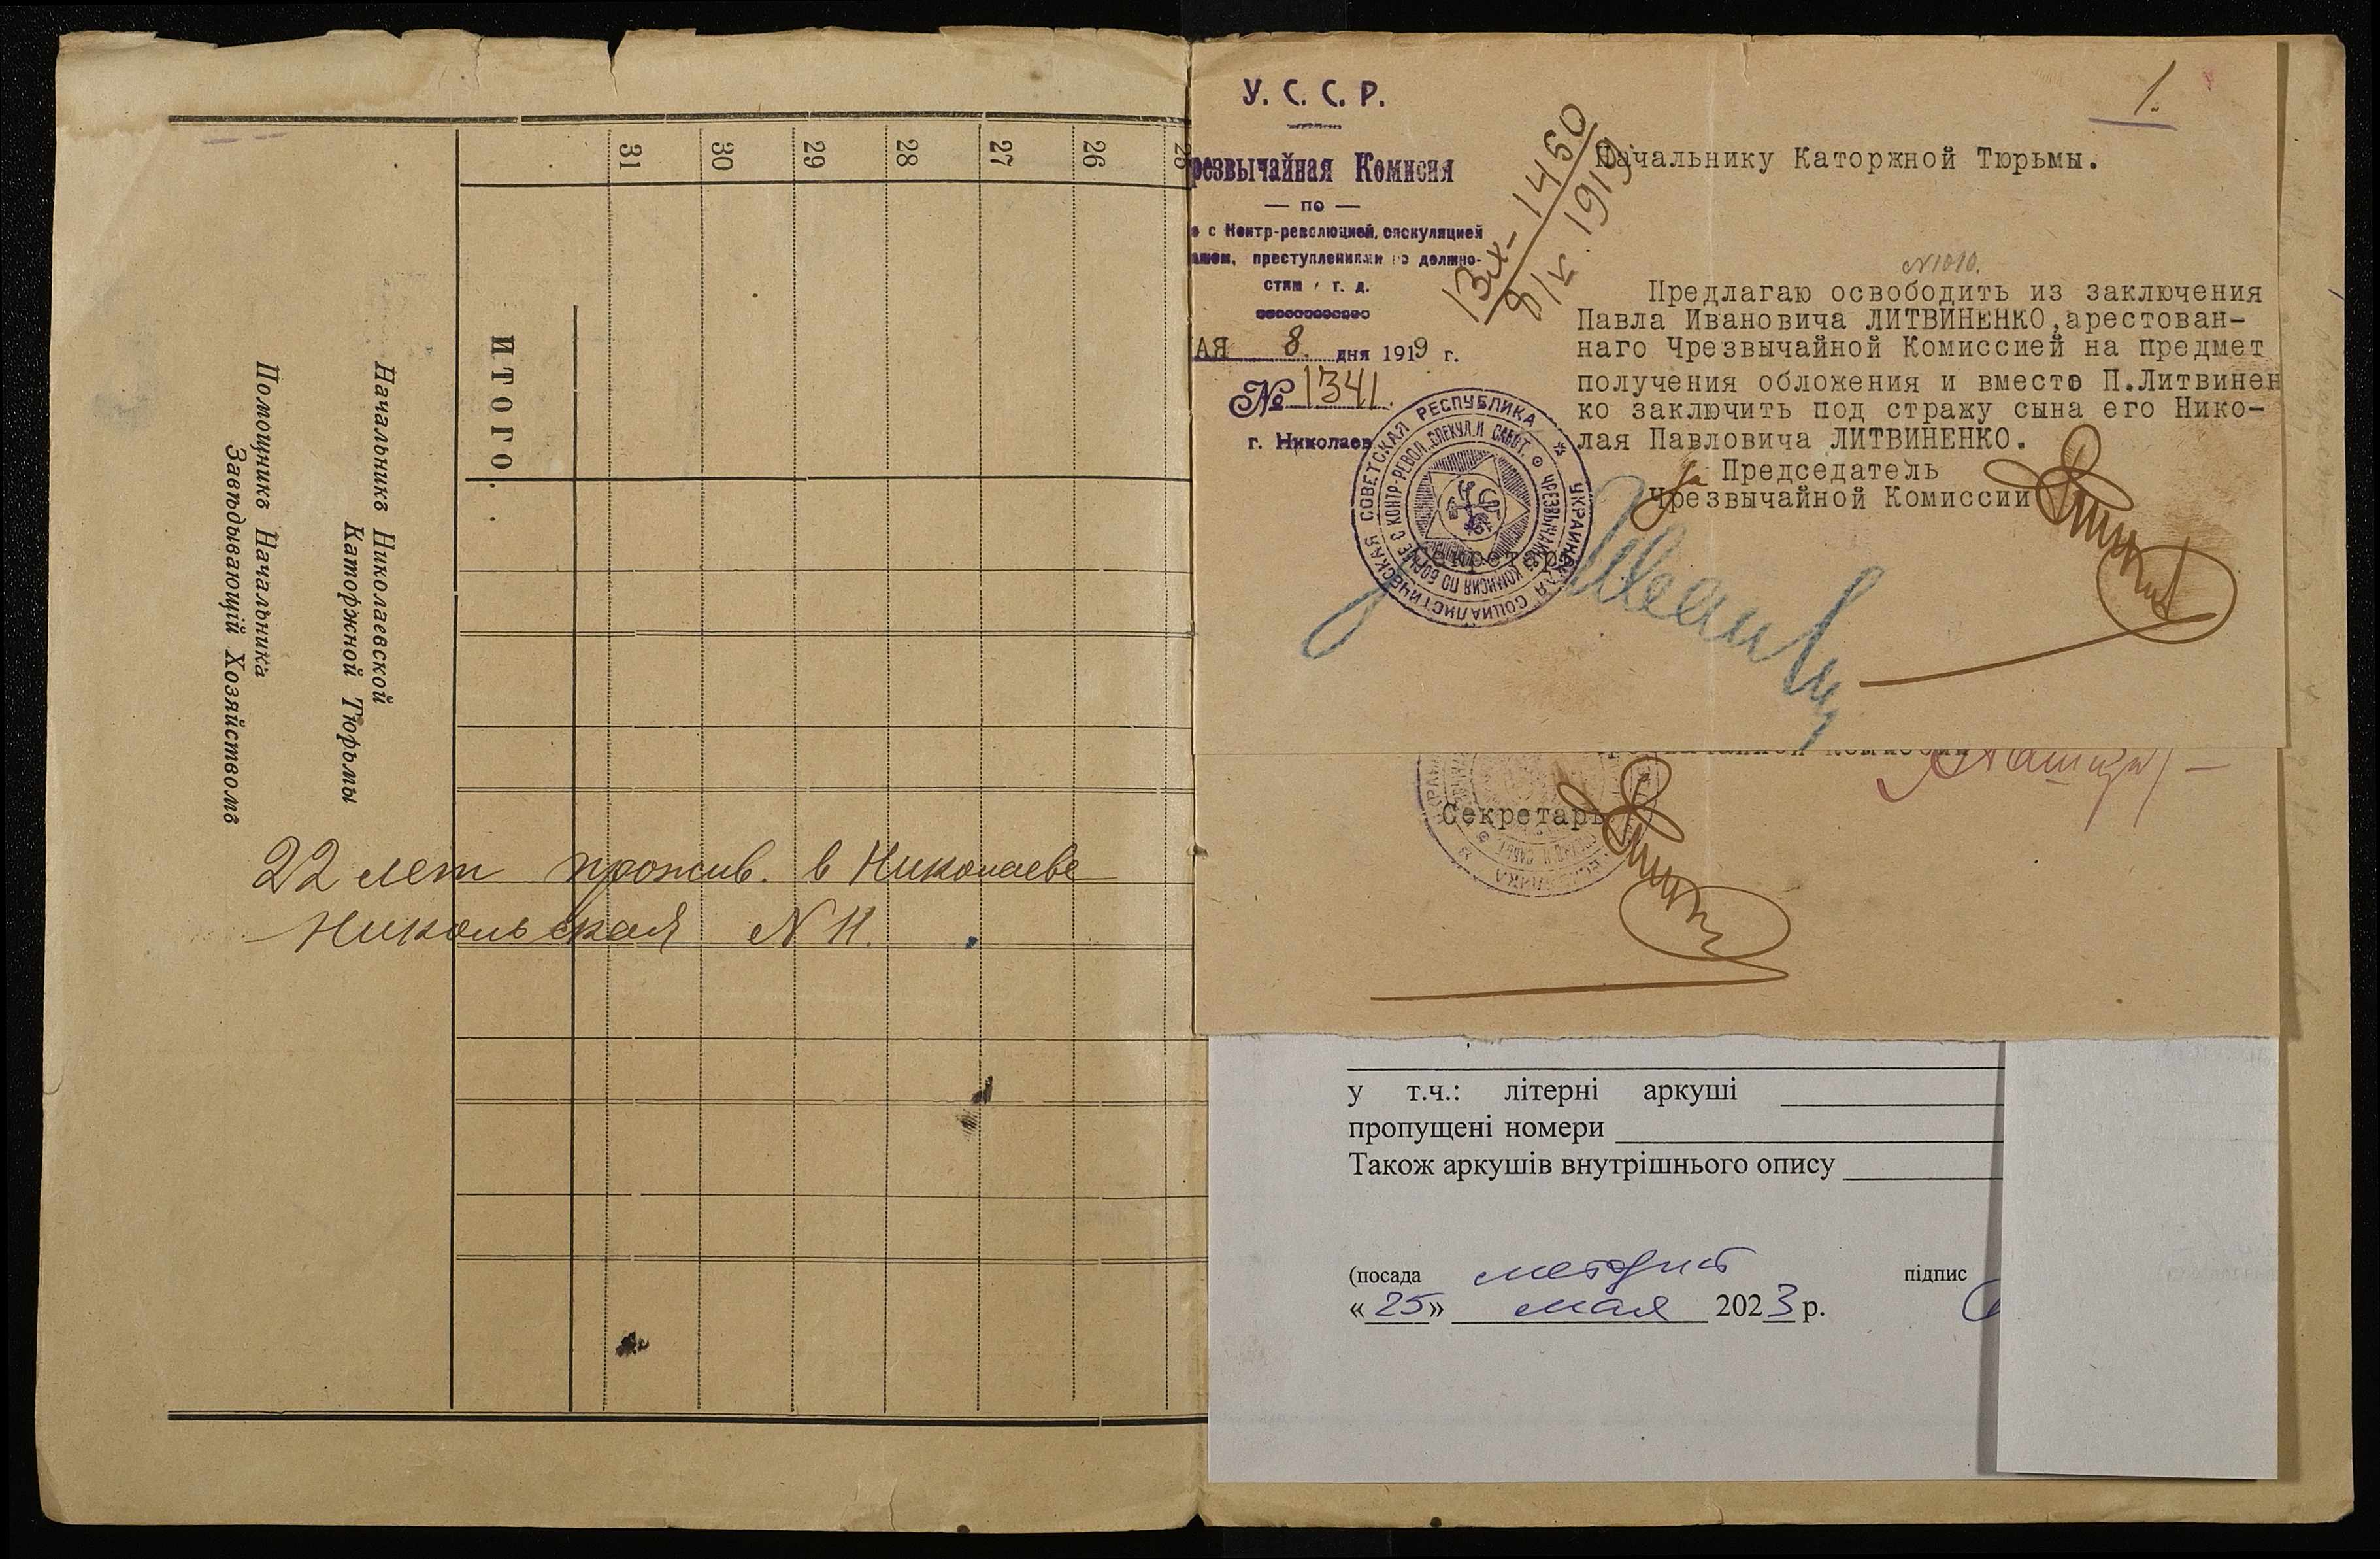 31
30
29
28
27
26
25
ИТОГО.
Начальникъ Николаевской
Каторжной Тюрьмы
Помощникъ Начальника
Завѣдывающій Хозяйствомъ
22 лет прожив. в Николаеве
Никольская N 11.
У. С. С. Р.
резвычайная Комисия
— по —
е с Контр-революцией, спекуляцией
ажем, преступлениями по должно-
стям и т. д.
АЯ 8. дня 1919 г.
№ 1341.
г. Николаев
1450
1919
1.
Начальнику Каторжной Тюрьмы.
N1010.
Предлагаю освободить из заключения
Павла Ивановича ЛИТВИНЕНКО,арестован-
наго Чрезвычайной Комиссией на предмет
получения обложения и вместо П.Литвинен
ко заключить под стражу сына его Нико-
лая Павловича ЛИТВИНЕНКО.
За Председатель
Чрезвычайной Комиссии
Секретарь
УКРАИНСКАЯ СОЦИАЛИСТИЧЕСКАЯ СОВЕТСКАЯ РЕСПУБЛИКА
ЧРЕЗВЫЧАЙНАЯ КОМИСИЯ ПО БОРЬБЕ С КОНТР-РЕВОЛ., СПЕКУЛ. И САБОТ.
Секретарь
у т.ч.: літерні аркуші
пропущені номери
Також аркушів внутрішнього опису
(посада методист підпис
«25» мая 2023 р.